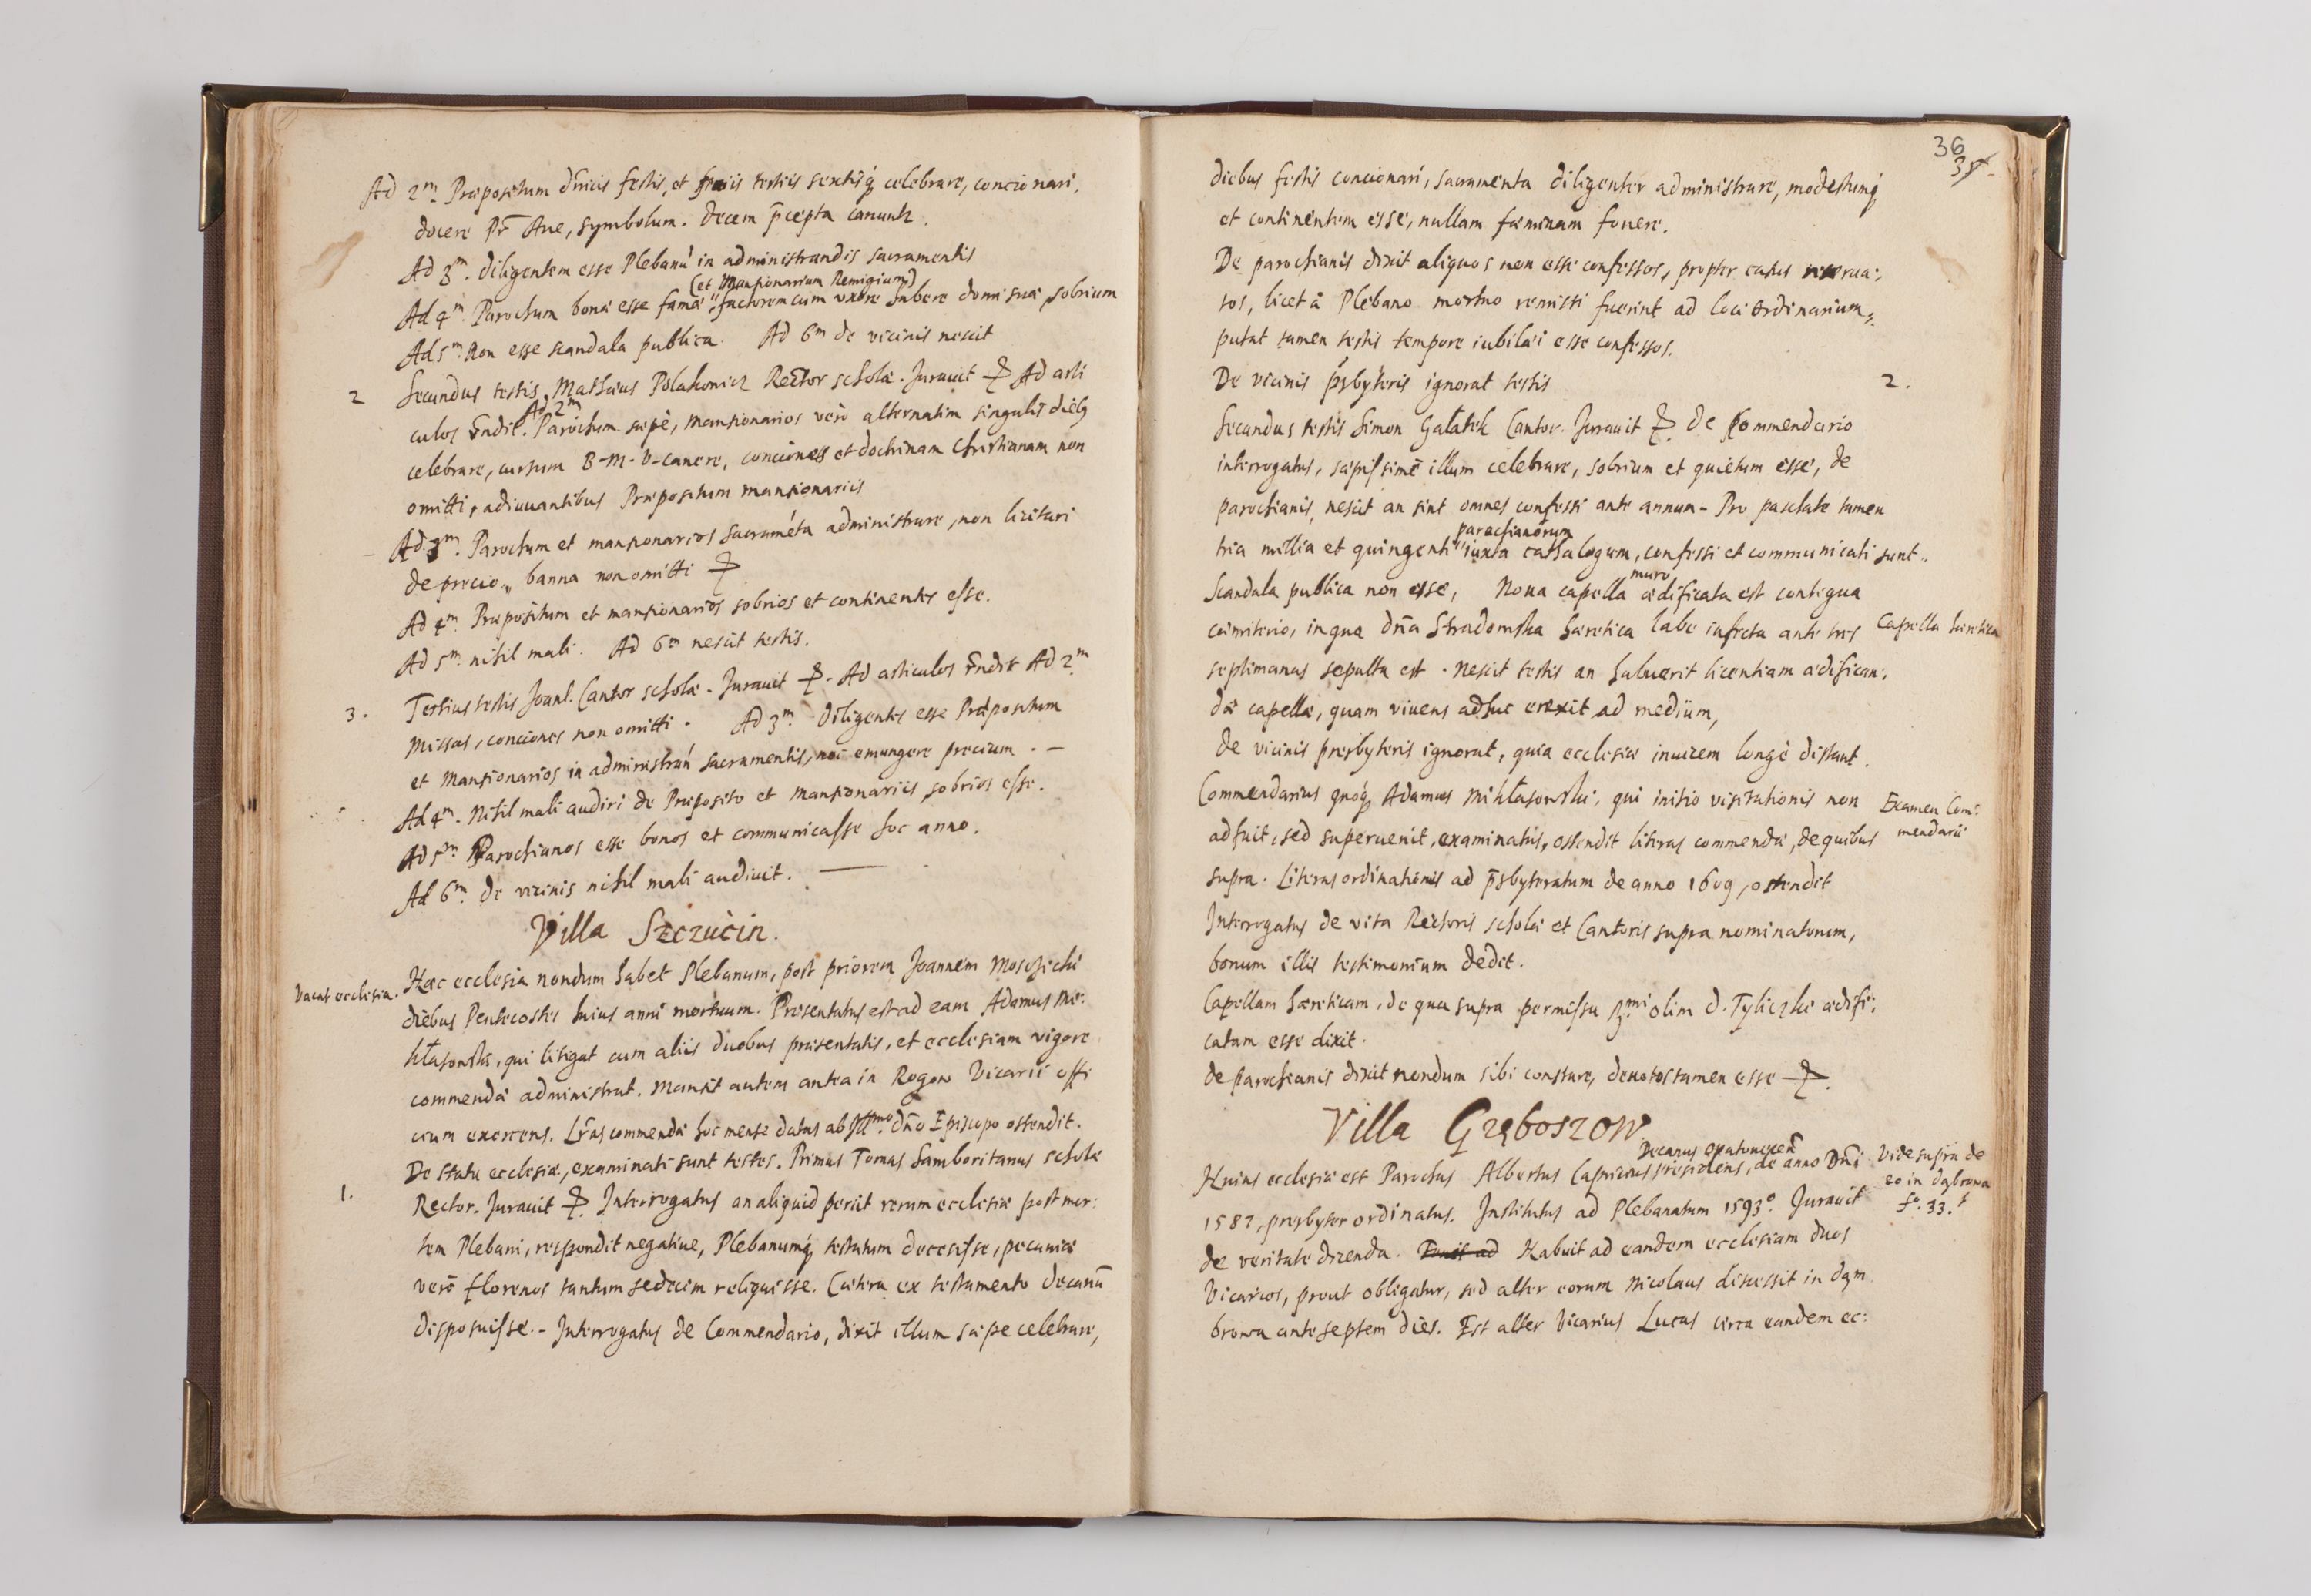 Ad 2m. Præpositum dñicis festis, et feriis tertiis sextisq celebrare, concionari,
docere Pr̄ Aue, symbolum. Decem p̄cepta canunt.
Ad 3m. diligentem esse Plebanū in administrandis sacramentis
(et Mansionarium Remigium)
Ad 4m. Parochum bonæ esse famæ, factorem cum uxore habere domi suæ, sobrium
Ad 5m. Non esse scandala publica. Ad 6m de vicinis nescit
2 Secundus testis, Mathæus Polakowicz Rector scholæ. Jurauit Ad arti
Ad 2m
culos r̄ndit. Parochum sæpè, mansionarios verò alternatim singulis dieb9
celebrare, cursum B-M-V-canere, conciones et doctrinam christianam non
omitti, adiuuantibus Præpositum mansionariis
Ad 3m. Parochum et mansionarios sacramēta administrare, non licitari
de precio, banna non omitti
Ad 4m. Præpositum et mansionarios sobrios et continentes esse.
Ad 5m. nihil mali. Ad 6m nescit testis.
3. Tertius testis Joanl. Cantor scholæ. Jurauit. Ad articulos r̄ndit Ad 2m
Missas, conciones non omitti. Ad 3m diligentes esse Præpositum
et Mansionarios in administrań sacramentis, nec emungere precium. —
Ad 4m. Nihil mali audiri de Præposito et mansionariis, sobrios esse.
Ad 5m Parochianos esse bonos et communicasse hoc anno.
Ad 6m. De vicinis nihil mali audiuit. —
Villa Szczucin.
Vacat ecclesia. Hæc ecclesia nondum habet Plebanum, post priorem Joannem
diebus Pentecostes huius anni mortuum. Præsentatus est ad eam Adamus Mi:
kłasowski, qui litigat cum aliis duobus præsentatis, et ecclesiam vigore
commendæ administrat. Mansit autem antea in Rogow Vicarii offi
cium exercens. Lr̄as commendæ hoc mense datas ab Illmo. dño Episcopo ostendit.
De statu ecclesiæ, examinati sunt testes. Primus Tomas Samboritanus scholæ
1. Rector. Jurauit. Interrogatus an aliquid periit rerum ecclesiæ post mor:
tem Plebani, respondit negatiue, Plebanumq testatum decessisse, pecuniæ
verò florenos tantum sedecim reliquisse. Cætera ex testamento decanū
disposuisse. - Interrogatus de Commendario, dixit illum sæpe celebrare,
36
35
diebus festis concionari, sacramenta diligenter administrare, modestumq
et continentem esse, nullam fæminam fouere.
De parochianis dixit aliquos non esse confessos, propter casus reserua:
tos, licet à Plebano mortuo remissi fuerint ad loci Ordinarium,
putat tamen testis tempore iubilæi esse confessos.
De vicinis p̄sbyteris ignorat testis
2.
Secundus testis Simon Gałatek Cantor. Jurauit. De Commendario
interrogatus, sæpissimè illum celebrare, sobrium et quietum esse, de
parochianis, nescit an sint omnes confessi ante annum - Pro paschate tamen
parochianorum
tria millia et quingenti iuxta cathalogum, confessi et communicati sunt.
muro
Scandala publica non esse, Noua capella ædificata est contigua
cæmiterio, in qua dña Stradomska hæretica labe infecta ante tres
Capella hæretica
septimanas sepulta est. Nescit testis an habuerit licentiam ædifican:
dæ capellæ, quam viuens adhuc erexit ad medium,
De vicinis presbyteris ignorat, quia ecclesiæ inuicem longè distant.
Commendarius quoq Adamus Mikłasowski, qui initio visitationis non
Examen Com:
mendarii
adfuit, sed superuenit, examinatus, ostendit literas commendæ, de quibus
supra. Literas ordinationis ad p̄sbyteratum de anno 1609, ostendit
Interrogatus de vita Rectoris scholæ et Cantoris supra nominatorum,
bonum illis testimonium dedit.
Capellam hæreticam, de qua supra permissu Rmi olim d. Tyliczki ædifi:
catam esse dixit.
De parochianis dixit nondum sibi constare, deuotos tamen esse
Villa Gręboszow
Decanus Opatouiceñ
Huius ecclesiæ est Parochus Albertus Capricius præsidens, de anno Dñi
Vide supra de
eo in Dąbrowa
fo. 33.
1587, presbyter ordinatus. Institutus ad Plebanatum 1593o. Jurauit
de veritate dicenda. Habuit ad eandem ecclesiam duos
Vicarios, prout obligatur, sed alter eorum Nicolaus discessit in Dąm
browa ante septem dies. Est alter Vicarius Lucas circa eandem ec: